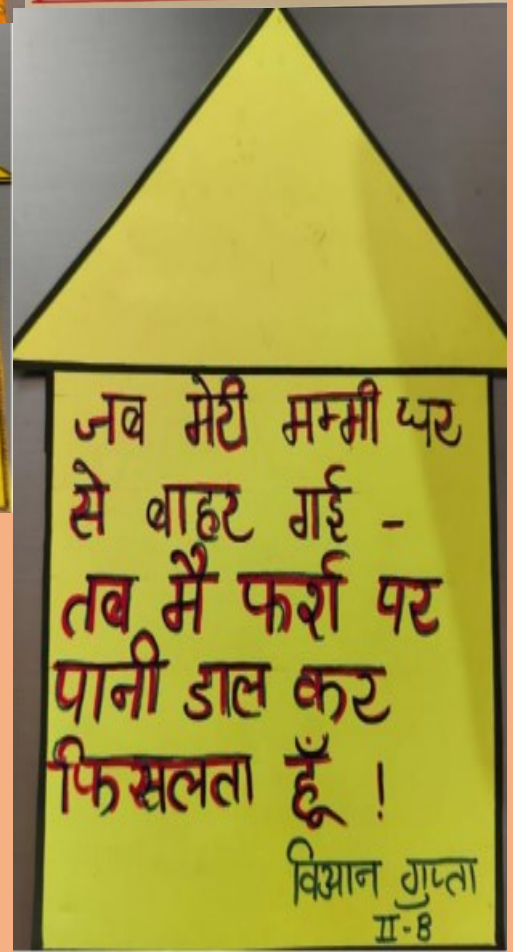 जब मेरी मम्मी घर
से बाहर गई -
तब मै फर्श पर
पानी डाल कर
फिसलता हूँ !
विआन गुप्ता
II-B